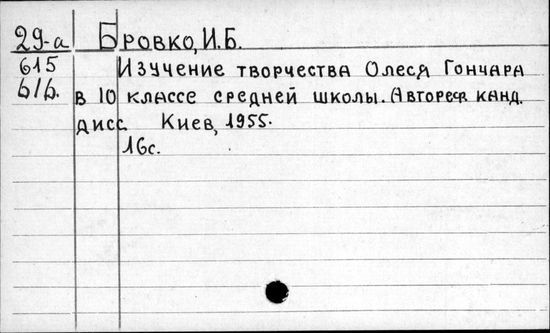 29-а Бровко, И.Б.
615 Изучение творчества Олеся Гончара
616. в 10 классе средней школы. Автореф. канд.
дисс. Киев, 1955.
16с.